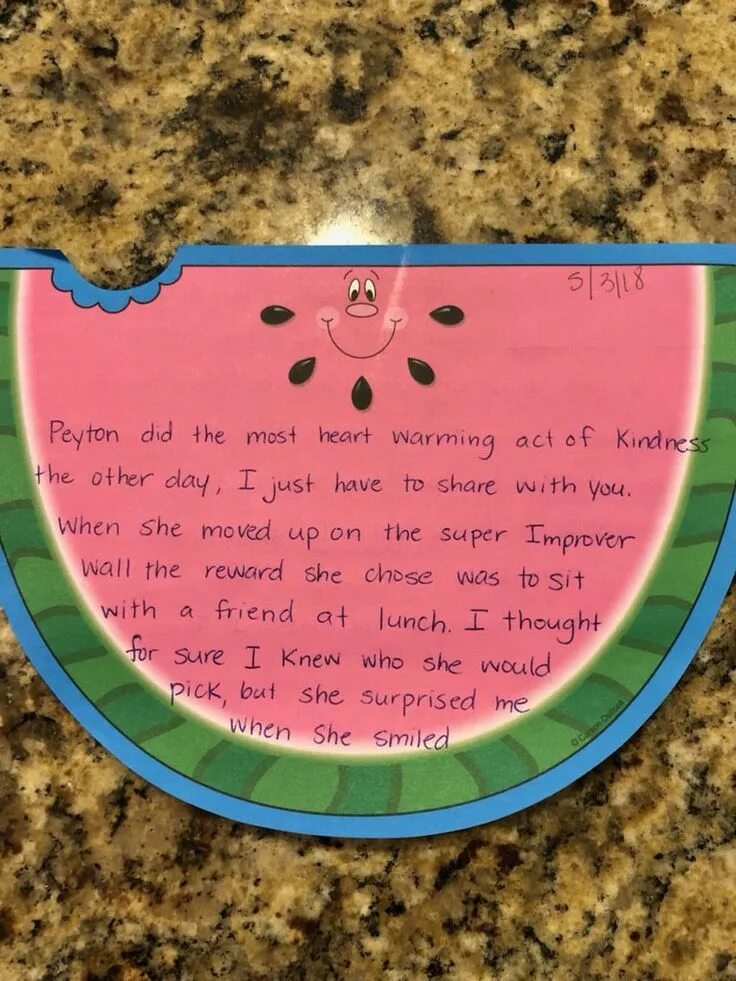 5/3/18
Peyton did the most heart warming act of Kindness
the other day, I just have to share with you.
When she moved up on the super Improver
Wall the reward she chose was to sit
with a friend at lunch. I thought
for sure I Knew who she would
pick, but she surprised me
when she smiled
© Carson-Dellosa